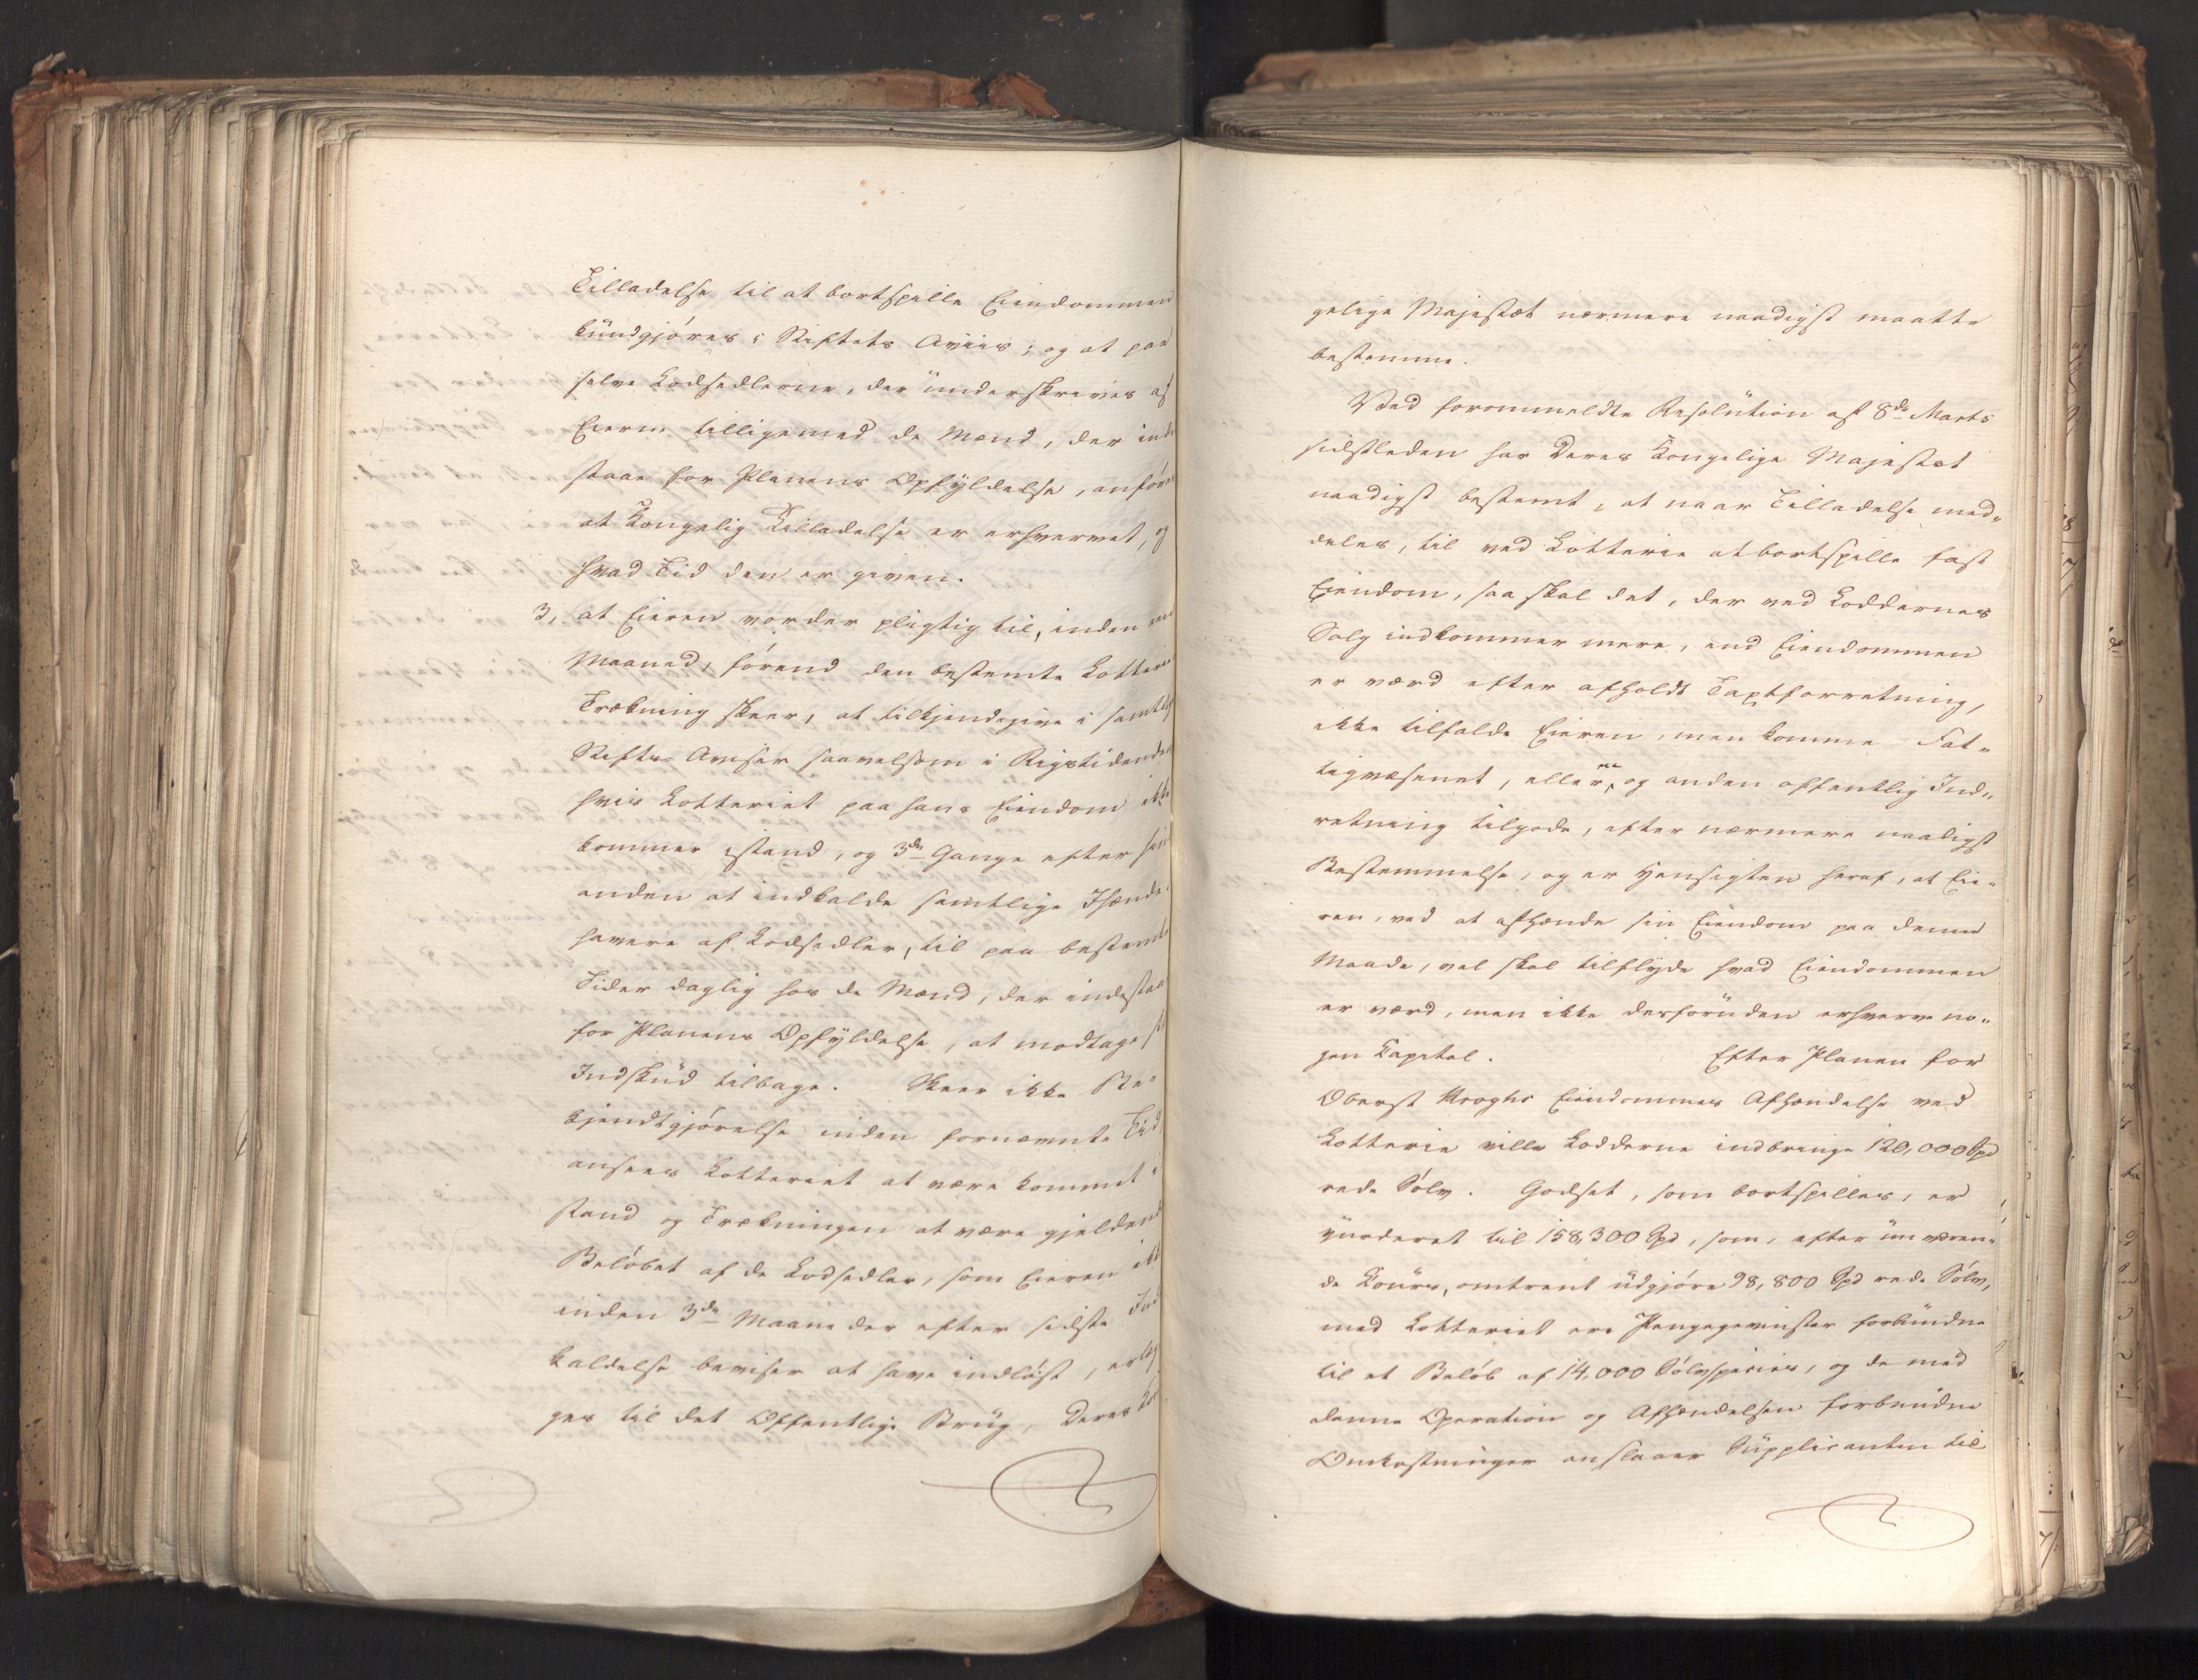 Tilladelse til at bortspille Eiendommen
kundgjøres i Stiftets Aviis; og at paa
selve Lodsedlerne, der underskrives af
Eieren tilligemed de Mænd, der inde
staae for Planens Opfyldelse, anføres
at Kongelig Tilladelse er erhvervet, og
hvad Tid den er given.
3, at Eieren vorder pligtig til, inden een
Maaned, førend den bestemte Lotterie
Trækning skeer, at tilkjendegive i samtlige
Stifts Aviser saavelsom i Rigstidenden
hvis Lotteriet paa hans Eiendom ikke
kommer istand, og 3de Gange efter hin
anden at indkalde samtlige Ihænde-
havere af Lodsedler, til paa bestemte
Tider daglig hos de Mænd, der indestaae
for Planens Opfyldelse, at modtage
Indskud tilbage. Skeer ikke Be-
kjendtgjørelse inden fornævnte Tid
ansees Lotteriet at være kommet i
stand og Trækningen at være gjeldende
Beløbet af de Lodsedler, som Eieren ikke
inden 3de Maaneder efter sidste Ind
kaldelse beviser at have indløst, erlæg
ges til det Offentlige Brug, Deres Kon
gelige Majestæt nærmere naadigst maatte
bestemme.
Ved forommeldte Resolution af 8de Marts
sidstleden har Deres Kongelige Majestæt
naadigst bestemt, at naar Tilladelse med-
deles, til ved Lotterie at bortspille fast
Eiendom, saa skal det, der ved Loddernes
Salg indkommer mere, end Eiendommen
er værd efter afholdt Taxtforretning,
ikke tilfalde Eieren, men komme Fat-
tigvæsenet, eller en og anden offentlig Ind-
retning tilgode, efter nærmere naadigst
Bestemmelse, og er Hensigten heraf, at Eie-
ren, ved at afhænde sin Eiendom paa denne
Maade, vel skal tilflyde hvad Eiendommen
er værd, men ikke desforuden erhverve no-
gen Capital. Efter Planen for
Oberst Kroghs Eiendommes Afhændelse ved
Lotterie ville Lodderne indbringe 120,000 Spd
rede Sølv. Godset, som bortspilles, er
vurderet til 158,300 Spd, som, efter nu væren-
de Cours, omtrent udgjøre 98,800 Spd rede Sølv,
med Lotteriet ere Pengegevinster forbundne
til et Beløb af 14,000 Sølvspecier, og de med
denne Operation og Afhændelsen forbundne
Omkostninger anslaaer Supplicanten til